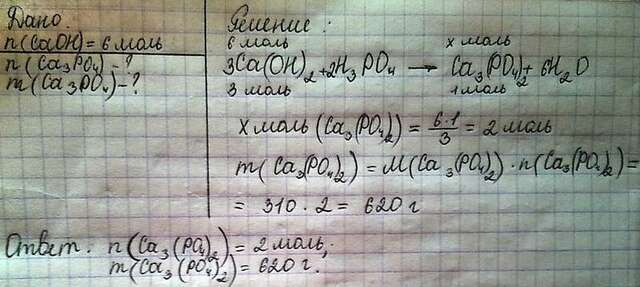 Дано:
n(CaOH)=6 моль
n(Ca₃PO₄)-?
m(Ca₃PO₄)-?
Решение:
6 моль x моль
3Ca(OH)₂+2H₃PO₄ → Ca₃(PO₄)₂+6H₂O
3 моль 1 моль
x моль (Ca₃(PO₄)₂) = 6·1/3 = 2 моль
m(Ca₃(PO₄)₂) = M(Ca₃(PO₄)₂)·n(Ca₃(PO₄)₂)=
= 310·2 = 620 г
Ответ: n(Ca₃(PO₄)₂)=2 моль;
m(Ca₃(PO₄)₂)=620 г.